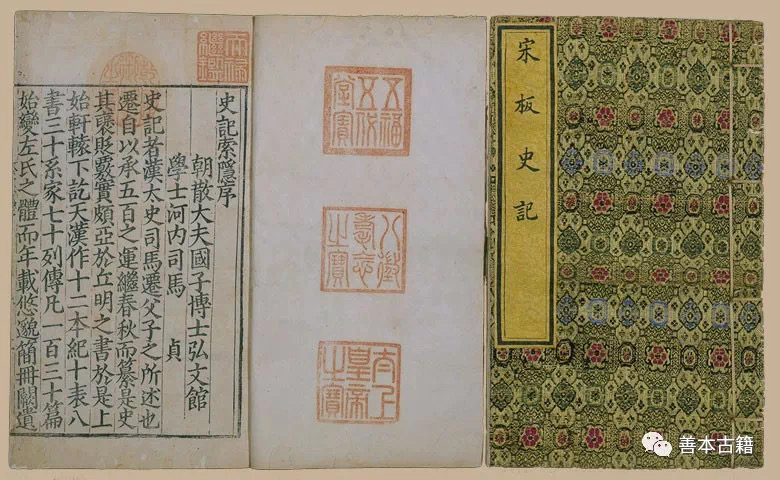 宋板史記
五福五代堂寶
八徵耄念之寶
太上皇帝之寶
天祿繼鑑
史記索隱序
朝散大夫國子博士弘文館
學士河內司馬 貞
史記者漢太史司馬遷父子之所述也
遷自以承五百之運繼春秋而纂是史
其褒貶覈實頗亞於丘明之書於是上
始軒轅下訖天漢作十二本紀十表八
書三十系家七十列傳凡一百三十篇
始變左氏之體而年載悠邈簡冊闕遺
善本古籍